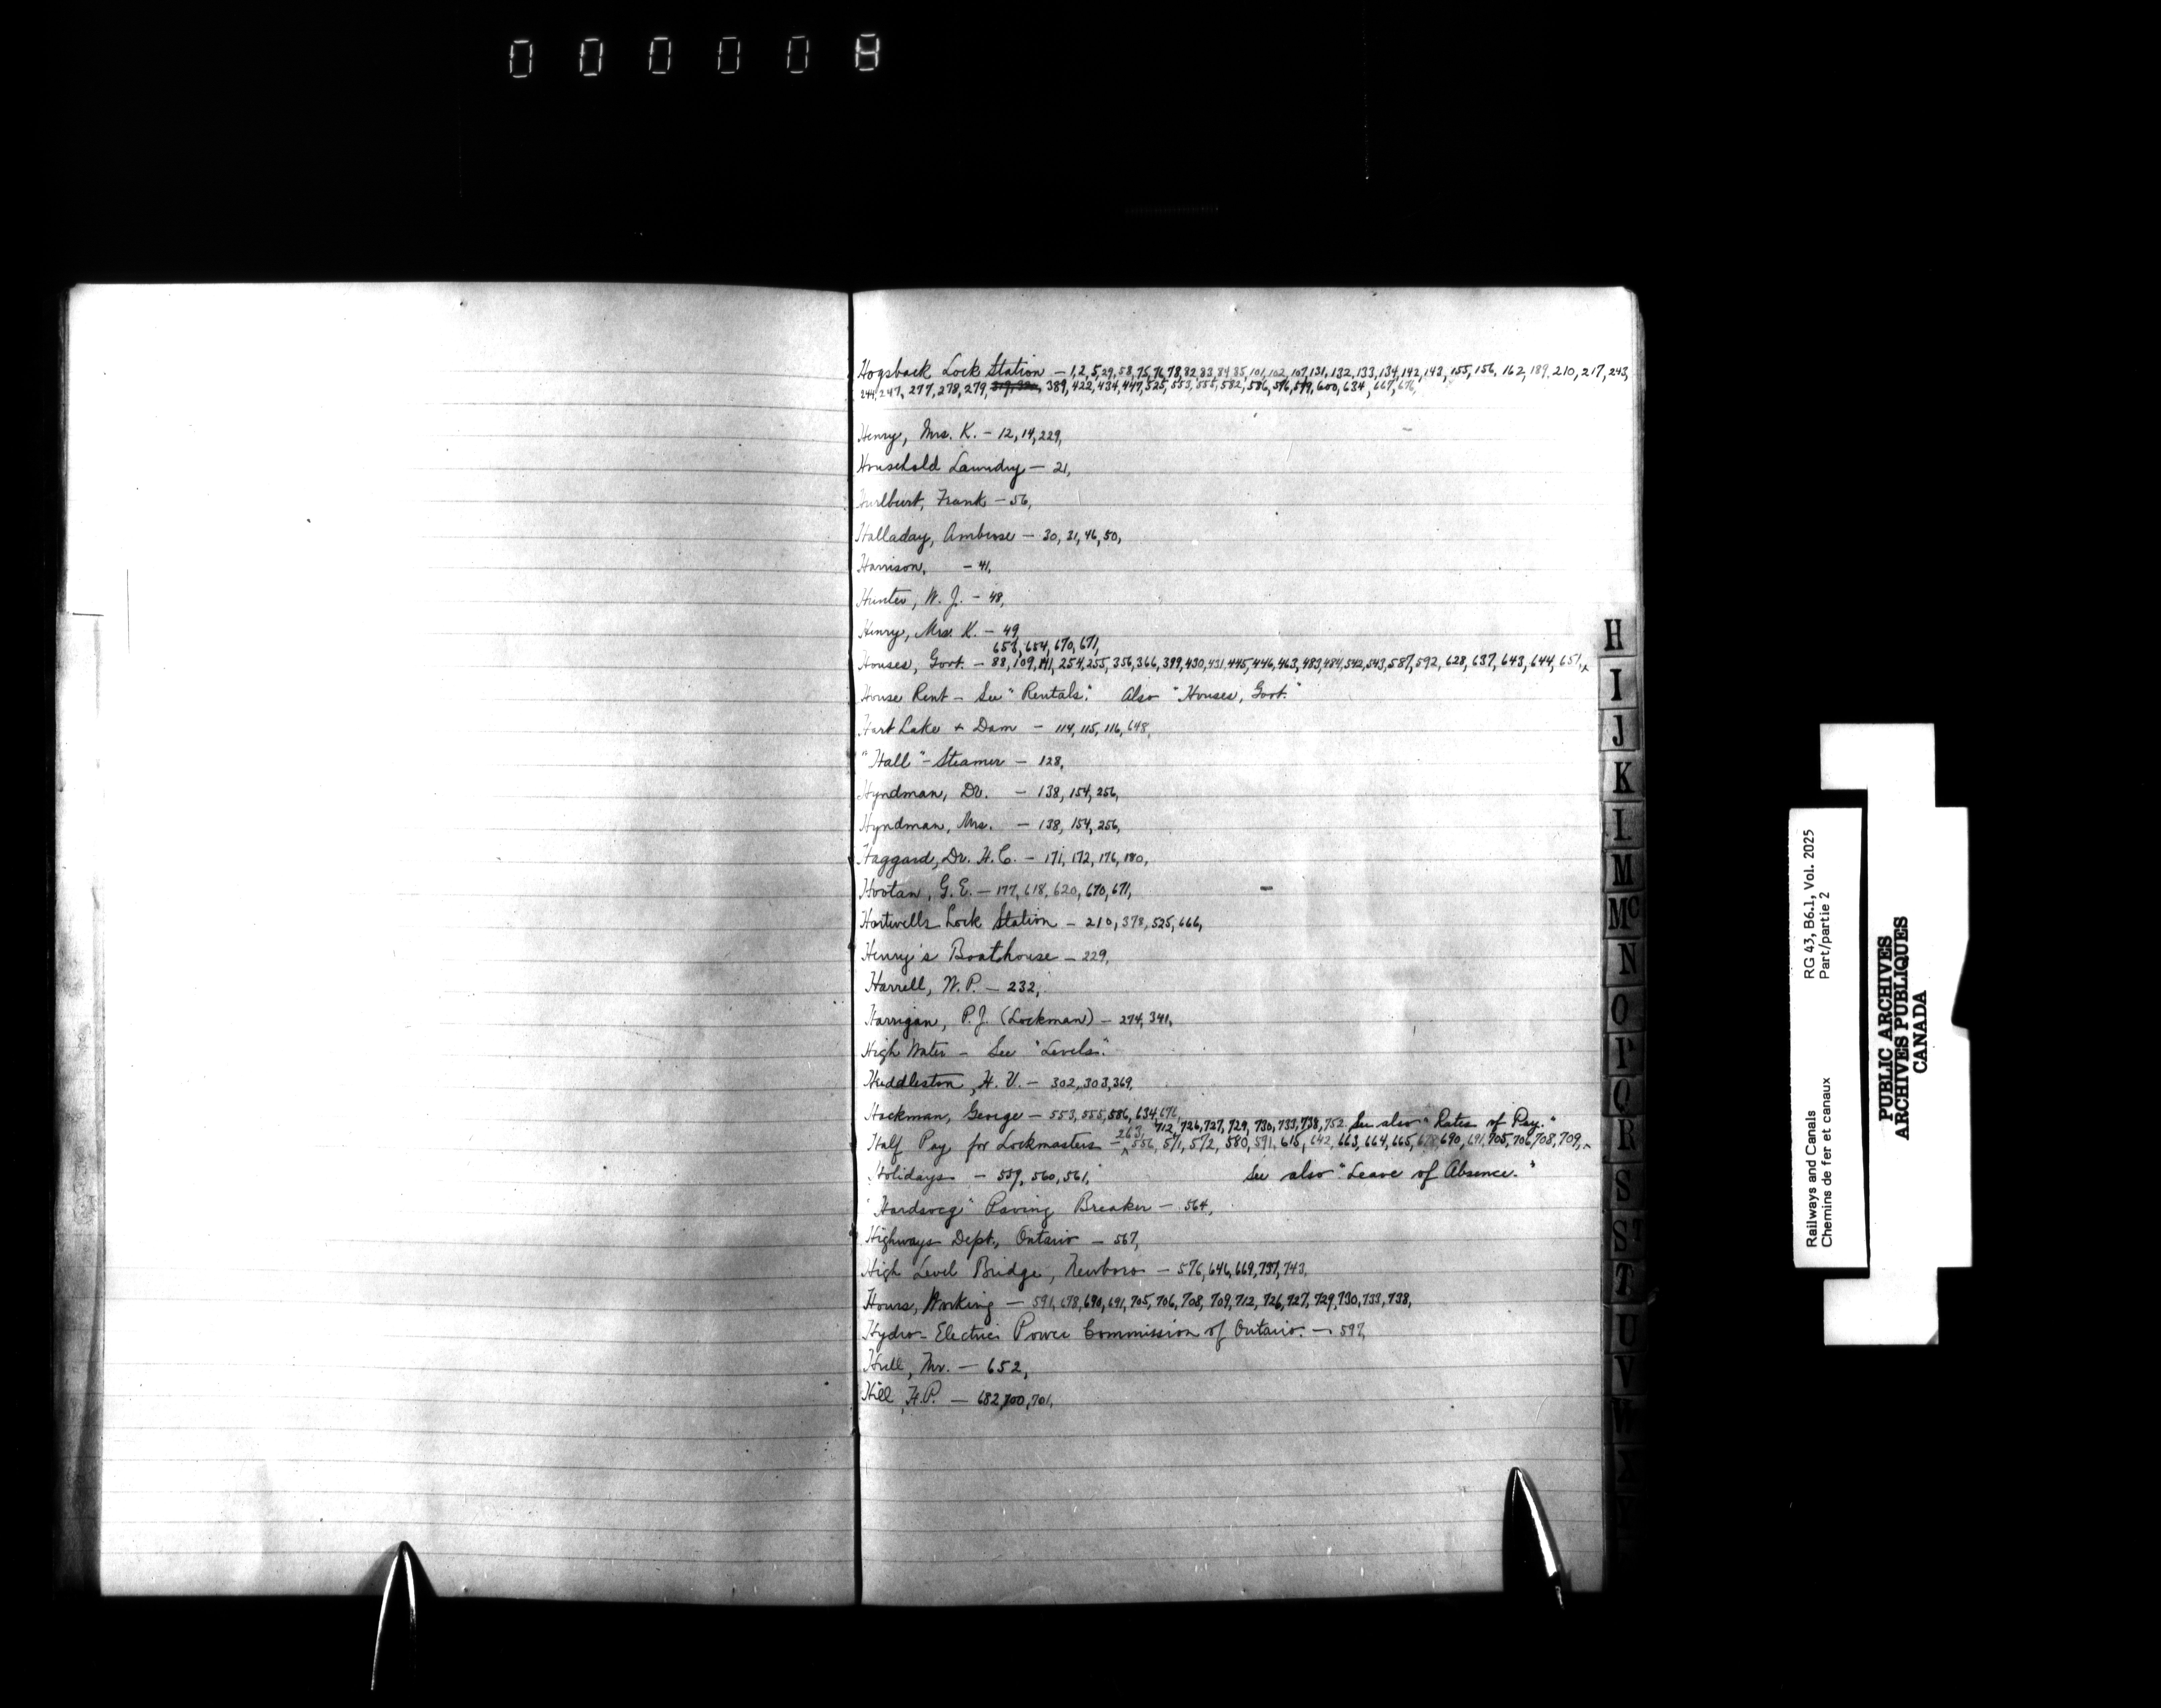 000008
Hogsback Lock Station — 1, 2, 5, 29, 58, 75, 76, 78, 82, 83, 84, 85, 101, 102, 107, 131, 132, 133, 134, 142, 143, 155, 156, 162, 189, 210, 217, 243,
244, 247, 277, 278, 279, 389, 422, 434, 447, 525, 553, 555, 582, 586, 596, 599, 600, 634, 667, 676,
Henry, Mrs. K. — 12, 14, 229,
Household Laundry — 21,
Hurlburt, Frank — 56,
Halladay, Ambrose — 30, 31, 46, 50,
Harrison, — 41,
Hunter, W. J. — 48,
Henry, Mrs. K. — 49,
653, 654, 670, 671,
Houses, Govt. — 88, 109, 141, 254, 255, 356, 366, 399, 430, 431, 445, 446, 463, 483, 484, 542, 543, 587, 592, 628, 637, 643, 644, 651,
House Rent — See "Rentals." Also "Houses, Govt."
Hart Lake + Dam — 114, 115, 116, 648,
"Hall" — Steamer — 128,
Hyndman, Dr. — 138, 154, 256,
Hyndman, Mrs. — 138, 154, 256,
Haggard, Dr. H. C. — 171, 172, 176, 180,
Hootan, G. E. — 177, 618, 620, 670, 671,
Hartwells Lock Station — 210, 378, 525, 666,
Henry's Boathouse — 229,
Harrell, W. P. — 232,
Harrigan, P. J. (Lockman) — 274, 341,
High Water — See "Levels."
Huddleston, H. V. — 302, 303, 369,
Hackman, George — 553, 555, 586, 634, 676,
712, 726, 727, 729, 730, 733, 738, 752. See also "Rates of Pay."
Half Pay for Lockmasters — 263, 556, 571, 572, 580, 591, 615, 642, 663, 664, 665, 678, 690, 691, 705, 706, 708, 709,
Holidays — 559, 560, 561, See also "Leave of Absence."
"Hardsocg" Paving Breaker — 564,
Highways Dept., Ontario — 567,
High Level Bridge, Newboro — 576, 646, 669, 737, 743,
Hours, Working — 591, 678, 690, 691, 705, 706, 708, 709, 712, 726, 727, 729, 730, 733, 738,
Hydro-Electric Power Commission of Ontario. — 597,
Hull, Mr. — 652,
Hill, H.P. — 682, 700, 701,
H
I
J
K
L
M
Mc
N
O
P
Q
R
S
ST
T
U
V
W
RG 43, B6.1, Vol. 2025
Part/partie 2
Railways and Canals
Chemins de fer et canaux
PUBLIC ARCHIVES
ARCHIVES PUBLIQUES
CANADA